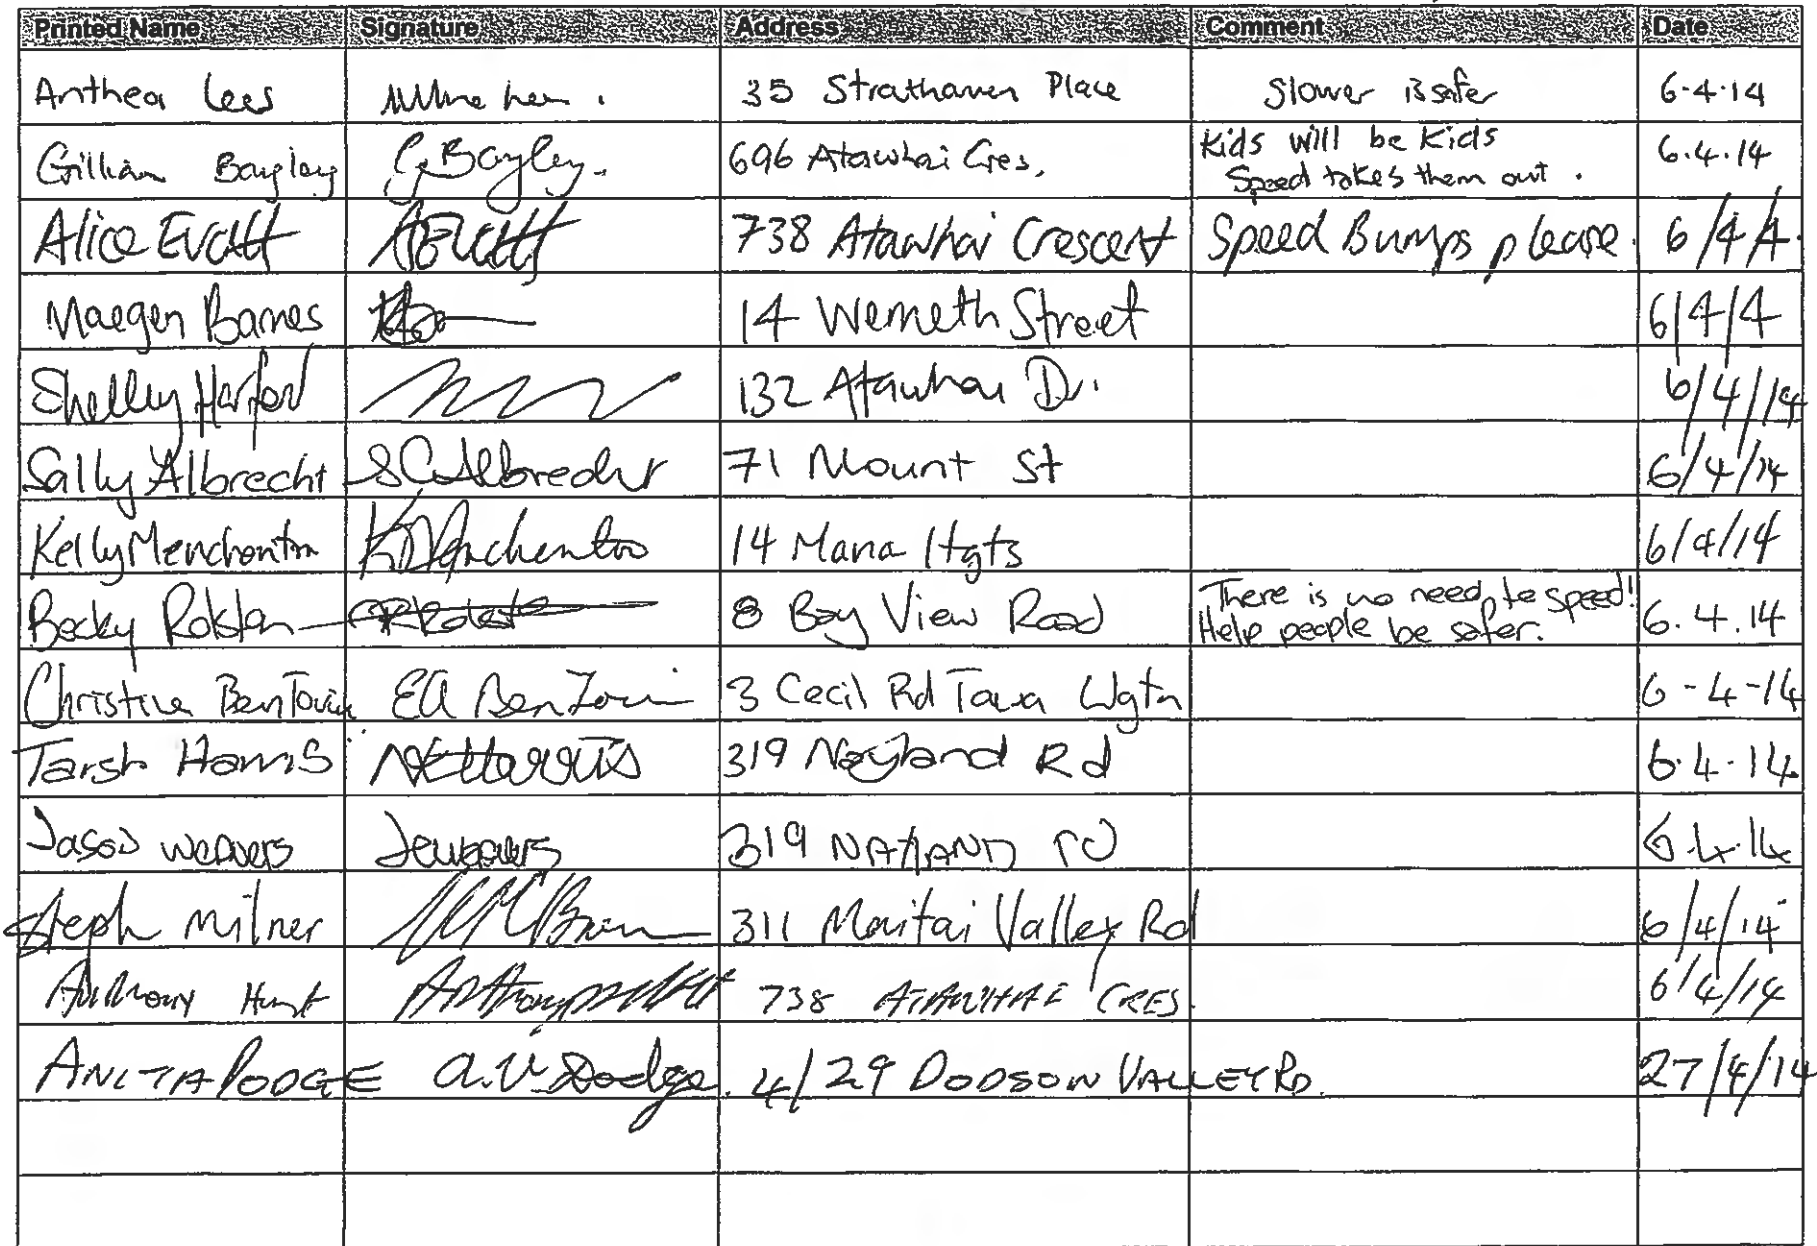 Printed Name Signature Address Comment Date
Anthea Lees 35 Strathaven Place Slower is safer 6.4.14
Gillian Bayley G Bayley. 696 Atawhai Cres. Kids will be Kids 6.4.14
Speed takes them out.
Alice Evatt AEvatt 738 Atawhai Crescent Speed Bumps please. 6/4/4.
Maegen Barnes 14 Werneth Street 6/4/4
Shelley Harford 132 Atawhai Dr. 6/4/14
Sally Albrecht SCAlbrecht 71 Mount St 6/4/14
Kelly Menchenton KMenchenton 14 Mana Hgts 6/4/14
Becky Rolston 8 Bay View Road There is no need to speed! 6.4.14
Help people be safer.
Christine BenTovim EA BenTovim 3 Cecil Rd Tawa Wgtn 6-4-14
Tarsh Harris Harris 319 Nayland Rd 6.4.14
Jason Weavers Jeweavers 319 NAYLAND rd 6.4.14
Steph Milner 311 Maitai Valley Rd 6/4/14
Anthony Hunt 738 ATAWHAI CRES. 6/4/14
ANITA DODGE A.V. Dodge. 4/29 DODSON VALLEY RD. 27/4/14